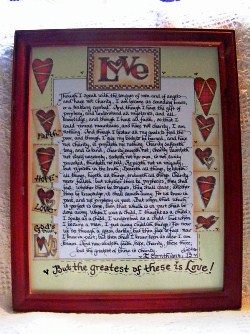 LOVE
Though I speak with the tongues of men and of angels
and have not charity, I am become as sounding brass,
or a tinkling cymbal. And though I have the gift of
prophecy, and understand all mysteries, and all
knowledge; and though I have all faith, so that I
could remove mountains, and have not charity, I am
nothing. And though I bestow all my goods to feed the
poor, and though I give my body to be burned, and have
not charity, it profiteth me nothing. Charity suffereth
long, and is kind; charity envieth not; charity vaunteth
not itself unseemly, seeketh not her own, is not easily
provoked, thinketh no evil; Rejoiceth not in iniquity
but rejoiceth in the truth; Beareth all things, believeth
all things, hopeth all things, endureth all things. Charity
never faileth: but whether there be prophecies, they shall
fail; whether there be tongues, they shall cease; whether
there be knowledge, it shall vanish away. For we know in
part, and we prophesy in part. But when that which
is perfect is come, then that which is in part shall be
done away. When I was a child, I
spake as a child, I understood as a child
I became a man, I put away childish things. For now
we see through a glass, darkly; but then face to face: now
I know in part; but then shall I know even as also I am
known. And now abideth faith, hope, charity, these three;
but the greatest of these is charity.
I Corinthians 13
Faith
Hope
Love
God's
But the greatest of these is Love!